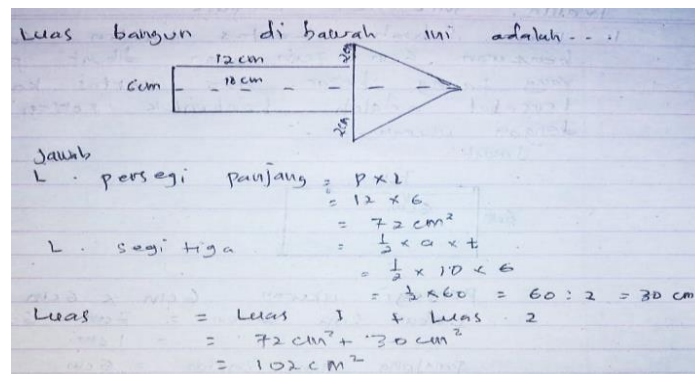 Luas bangun di bawah ini adalah ....
12 cm
2cm
6cm
18 cm
2cm
Jawab
L . persegi panjang = P x L
= 12 x 6
= 72 cm²
L . segi tiga = ½ x a x t
= ½ x 10 x 6
= ½ x 60 = 60 : 2 = 30 cm
Luas = Luas 1 + Luas 2
= 72 cm² + 30 cm²
= 102 cm²